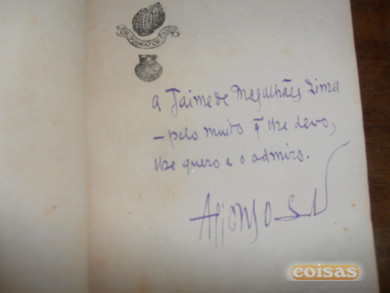 A Jaime de Magalhães Lima
— pelo muito q̃ lhe devo,
lhe quero e o admiro.
coisas